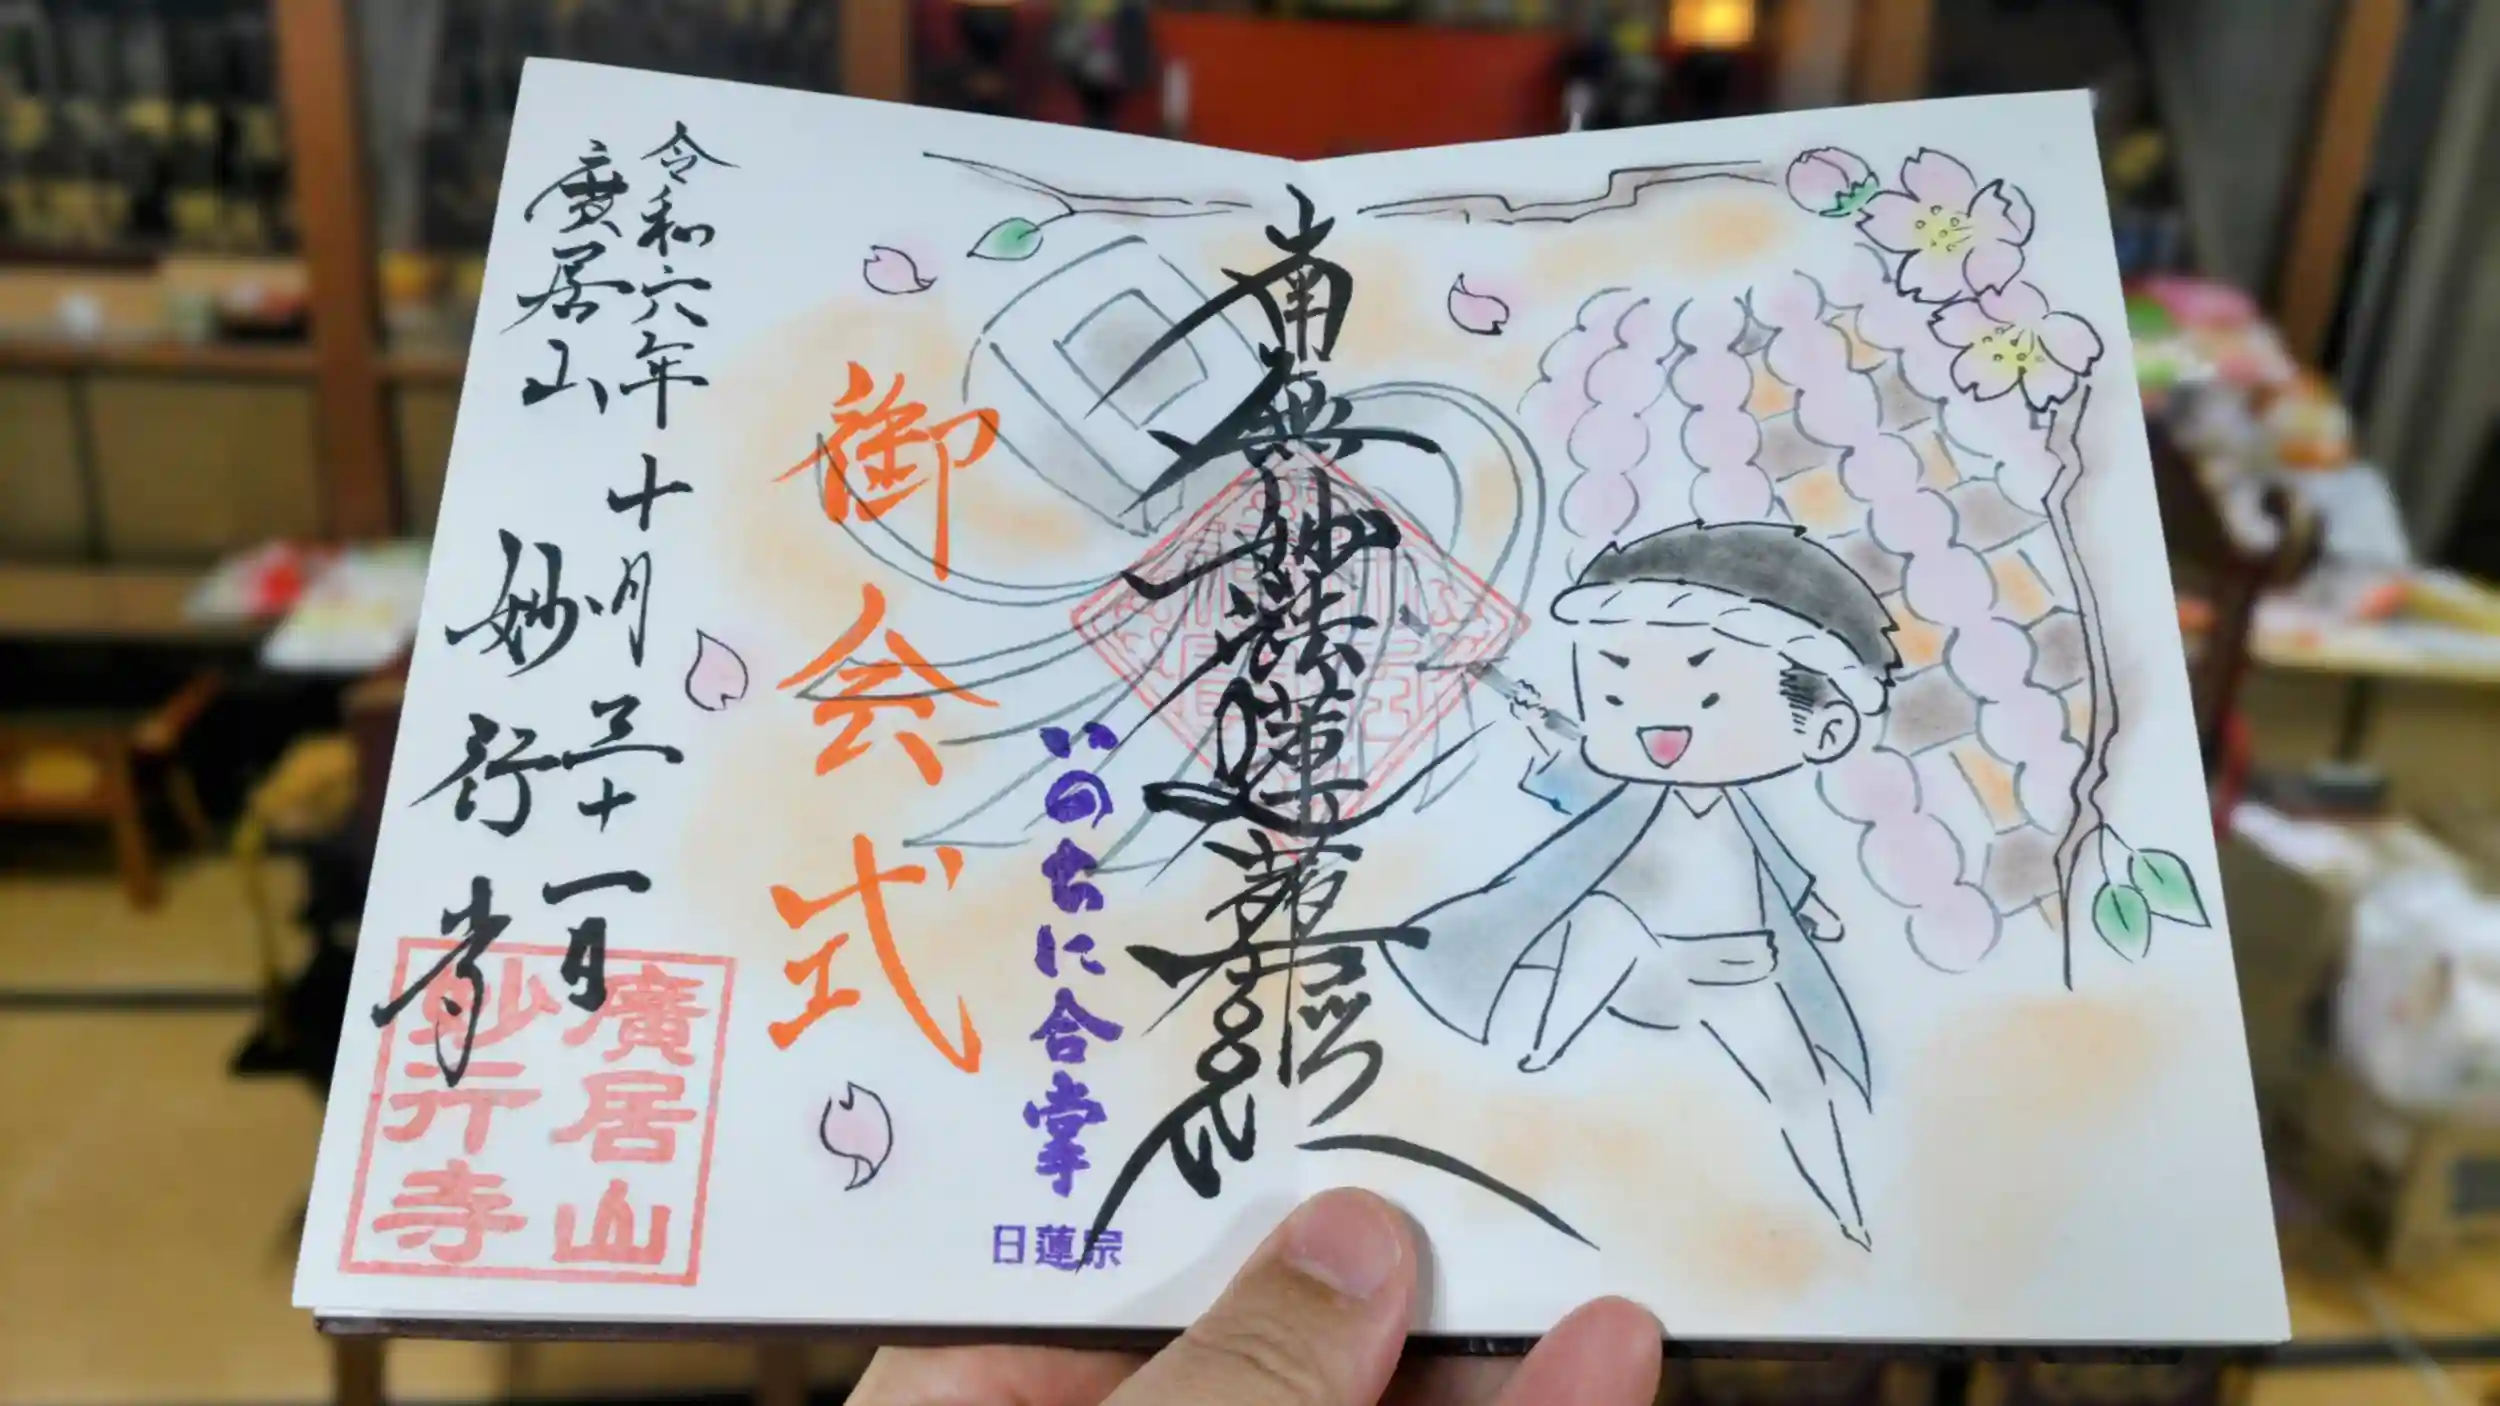 南無妙法蓮華経
いのちに合掌
日蓮宗
御会式
令和六年十月三十一日
廣居山 妙行寺
廣居山
妙行寺